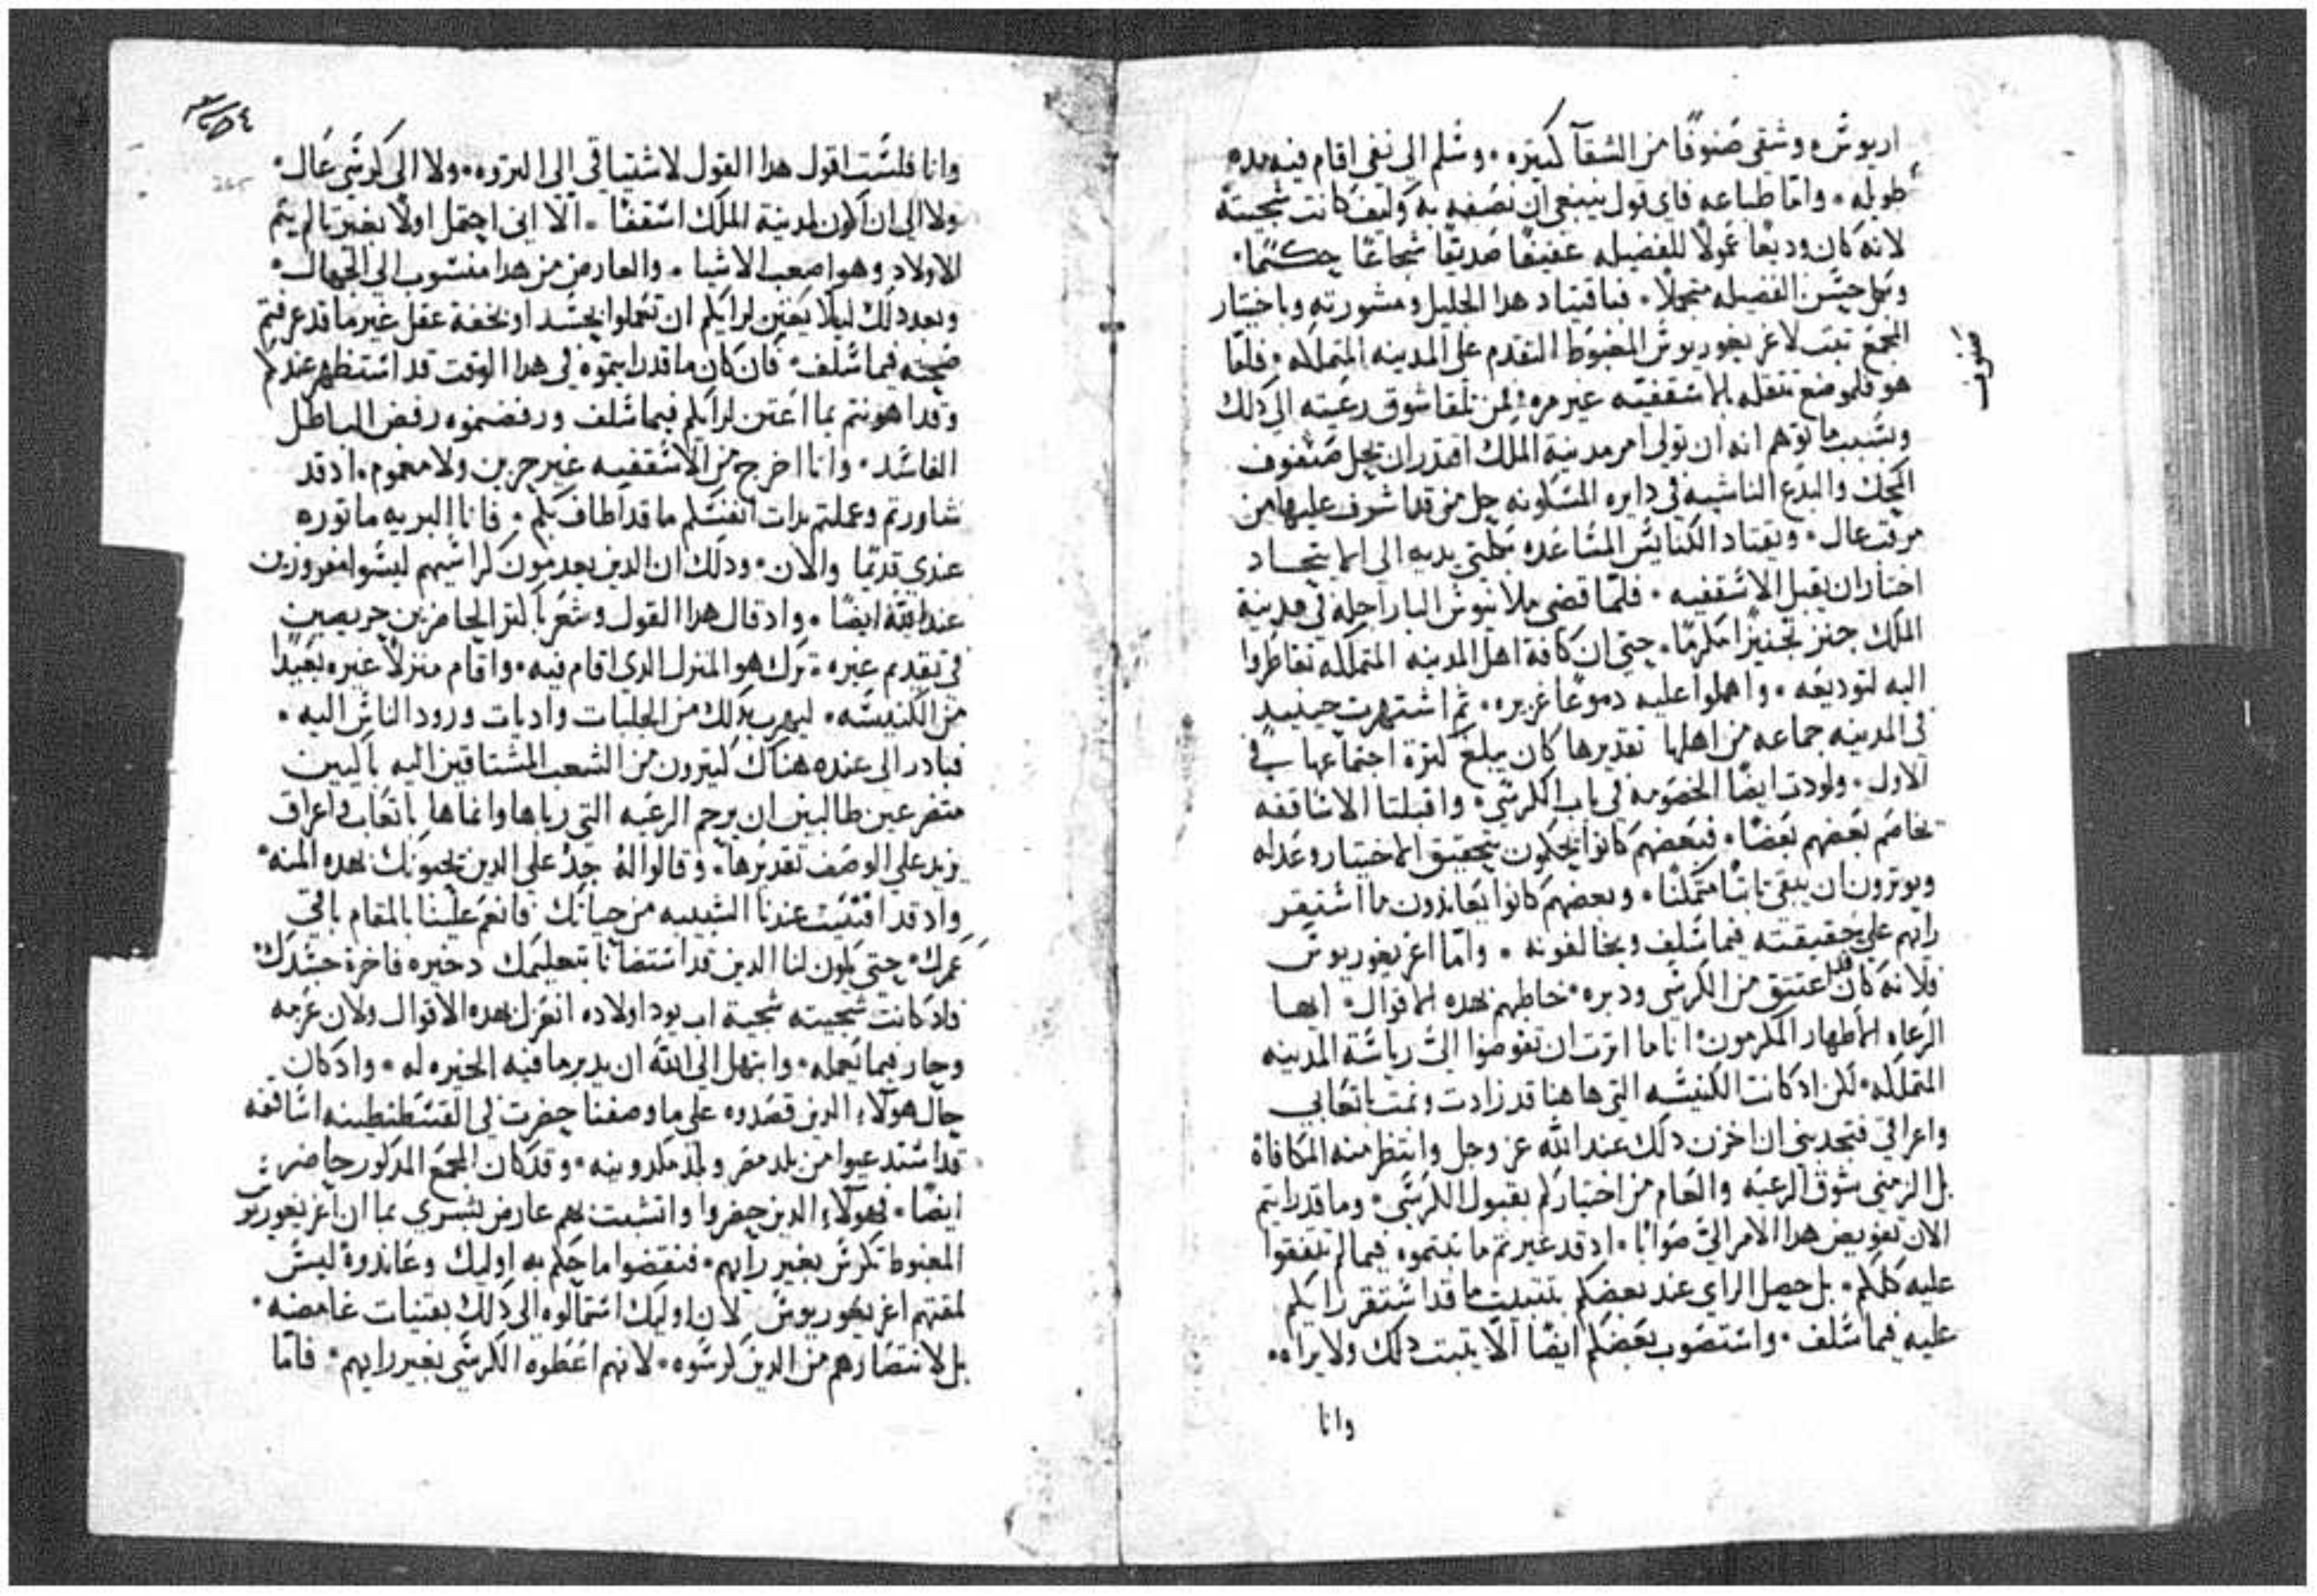 اريوش وشقى صنوفًا من الشقآ كثيره. وشلم الى نفى اقام فيه مده
طويله. واما طباعه فاى قول ينبغى ان نصفه به وكيف كانت شجيته
لانه كان وديعًا عمولًا للفضيله عفيفًا صديقًا شجاعًا حكيمًا.
وبكل حشن الفضيله متجملًا. فباقتياد هدا الجليل ومشورته وباختيار
المجمع تبت لاغريغوريوش المغبوط التقدم على المدينه المتملكه. فلما
هو فلموضع تنقله الاشقفيه غير مره. لمن تلقا شوق رعيته الى دلك
وبشبب ما توهم انه ان تولى امر مدينة الملك اقتدر ان يحل صنفوف
المحك والبدع الناشيه فى دايره المشكونه حل من قد اشرف عليها من
مرقب عال. ويقتاد الكنايش المتباعده بكلتى يديه الى الاتحاد
اختار ان يقبل الاشقفيه. فلما قضى ملاتيوش البار اجله فى مدينة
الملك جنز تجنيزًا مكرمًا. حتى ان كافة اهل المدينه المتملكه تقاطروا
اليه لتوديعه. واهملوا عليه دموعًا غزيره. ثم اشتهرت حينيد
فى المدينه جماعه من اهلها تقديرها كان يبلغ كترة اجتماعها فى
الاول. وتولدت ايضًا الخصومه فى باب الكرشى. واقبلتا الاشاقفه
تخاصم بعضهم بعضًا. فبعضهم كانوا يحكمون بتحقيق الاختيار وعداله
ويوترون ان يبقى تابتًا متمكنًا. وبعضهم كانوا يعاندون ما اشتقر
رايهم على حقيقته فيما شلف ويخالفونه. واما اغريغوريوش
فلانه كان قد اعتتق من الكرشى ودبره. خاطبهم بهده الاقوال. ايها
الرعاه الاطهار المكرمون. انا ما اترت ان تفوضوا الىّ رياشة المدينه
المتملكه. لكن اد كانت الكنيشه التى هاهنا قد زادت ونمت باتعابى
واعراقى فتجدينى ان اخزن دلك عند الله عز وجل وانتظر منه المكافاة
بل الزمنى شوق الرعيه والعام من اختياركم بقبول الكرشى. وما قد رايتم
الان تفويض هدا الامر الىّ صوابًا. اد قد غيرتم ما تبتموه فيما لم تتفقوا
عليه كلكم. بل حصل الراى عند بعضكم بتتبيت ما قد اشتقر رايكم
عليه فيما شلف. واشتصوب بعضكم ايضًا الّا يتبت دلك ولا يراه.
وانا
صنوف
وانا فلشت اقول هدا القول لاشتياقى الى التروه. ولا الى كرشى عال.
ولا الى ان اكون لمدينة الملك اشقفًا. الا انى احتمل اولًا بغير تالم يتم
الاولاد وهو اصعب الاشيا. والعارض من هدا منشوب الى الجهال.
وبعد دلك ليلا يعتن لرايكم ان تعملوا بحشد او بخفة عقل غير ما قد عرفتم
صحته فيما شلف. فان كان ما قد رايتموه فى هدا الوقت قد اشتظهر عندكم
وقد اهونتم بما اعتن لرايكم فيما شلف ورفضتموه رفض الباطل
الفاشد. وانا اخرج من الاشقفيه غير حزين ولا مغموم. اد قد
شاورتم وعملتم بدات انفشكم ما قد اطاف بكم. فانا البريه ماتوره
عندى قديمًا والان. ودلك ان الدين يعدمون كراشيهم ليشوا مفروزين
عند الله ايضًا. واد قال هدا القول وشعر باكتر الحاضرين حريصين
فى تقديم غيره. ترك هو المنزل الدى اقام فيه. واقام منزلًا غيره بعيدًا
من الكنيشه. ليهرب بدلك من الجلبات واديات ورود الناش اليه.
فبادر الى عنده هناك كتيرون من الشعب المشتاقين اليه باكيين
متضرعين طالبين ان يرحم الرعيه التى رباها وانماها باتعاب واعراق
يزيد على الوصف تقديرها. وقالوا له جد على الدين يحبونك بهده المنه.
واد قد افنيت عندنا الشبيبه من حياتك فانعم علينا بالمقام باقى
عمرك. حتى يكون لنا الدين قد اشتضانا بتعليمك دخيره فاخرة جشدك
فاد كانت شجيته شجية اب يود اولاده انعزل بهده الاقوال ولان عزمه
وحار فيما يعمله. وابتهل الى الله ان يدبر ما فيه الخيره له. واد كان
حال هولاء الدين قصدوه على ما وصفنا حضرت فى القشطنطينيه اشاقفه
قد اشتدعيوا من بلد مصر وبلد مكدونيه. وقد كان المجمع المدكور حاضر
ايضًا. فهولاء الدين حضروا وانتشبت بهم عارض بشرى بما ان اغريغوريوش
المغبوط تكرش بغير رايهم. فنقضوا ما حكم به اوليك وعاندوة ليش
لمقتهم اغريغوريوش لان اوليك اشتمالوه الى دلك بقتيات غامضه.
بل لانتضارهم من الدين كرشوه. لانهم اعطوه الكرشى بغير رايهم. فاما